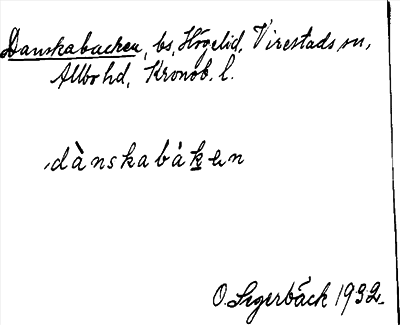 Danskabacken, bs, Högelid, Virestads sn,
Allbo hd, Kronob. l.
dànskabákən
O. Segerbäck 1932.